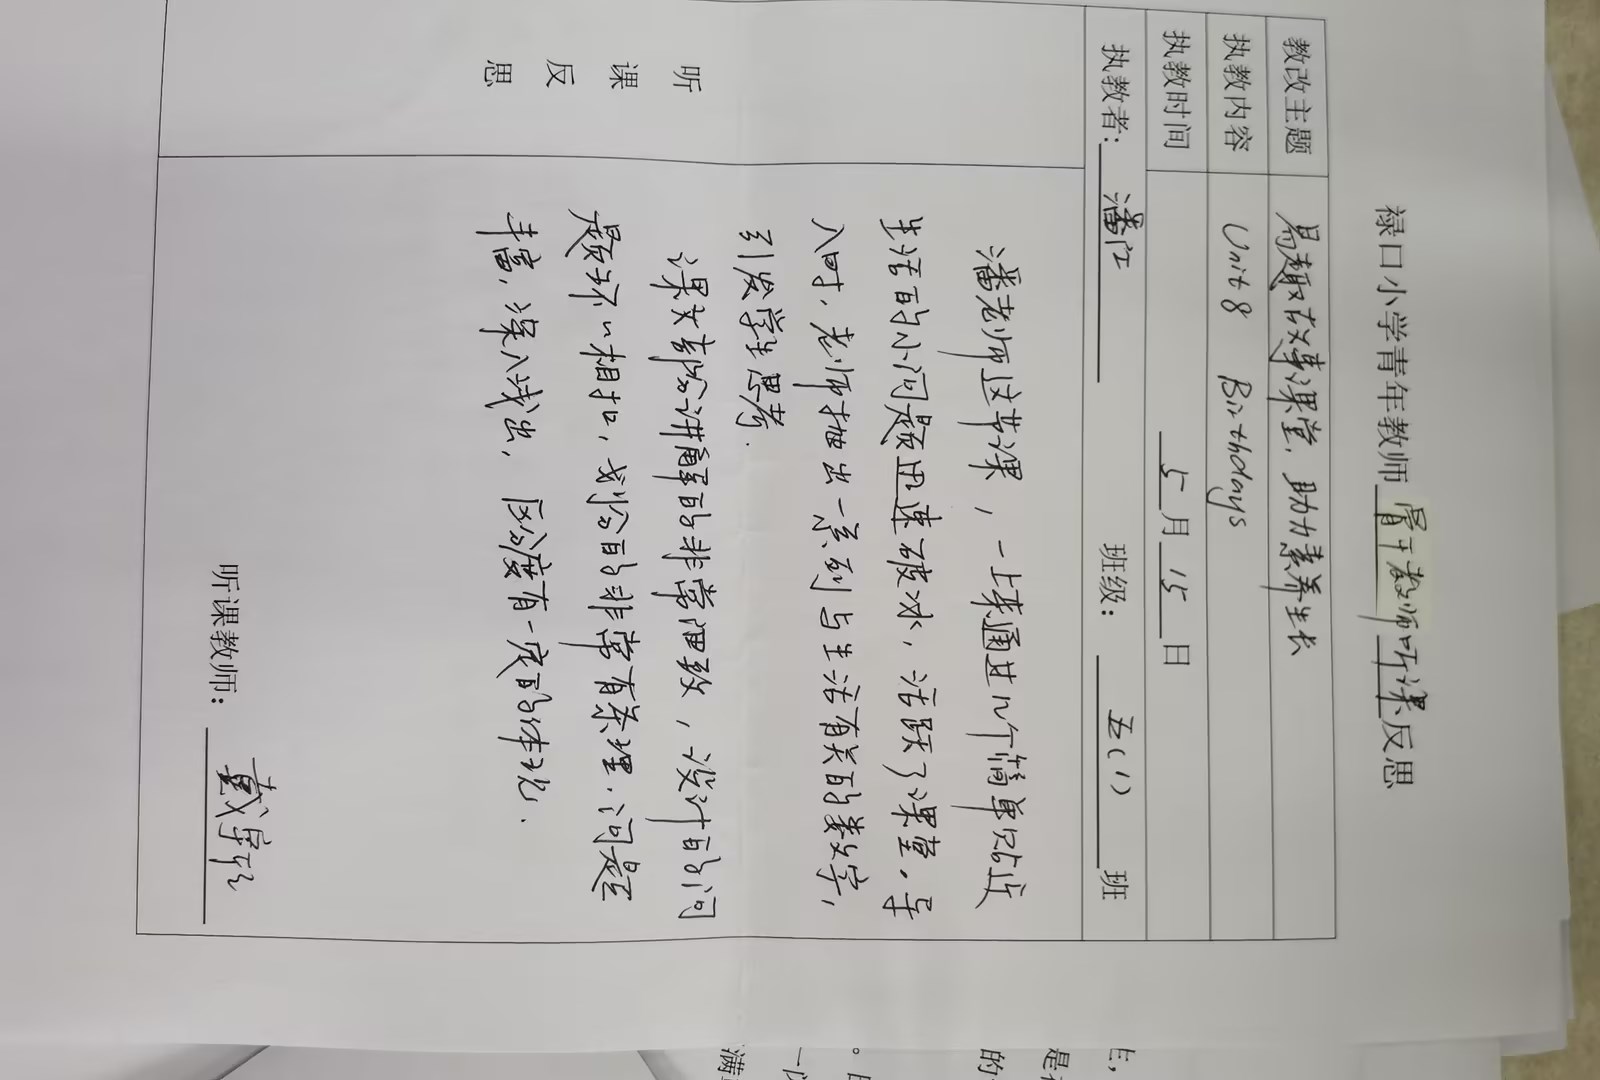 禄口小学青年教师骨干教师听课反思
教改主题 易趣故事课堂，助力素养生长
执教内容 Unit 8 Birthdays
执教时间 5月15日
执教者：潘江 班级：五(1)班
听课反思
潘老师这节课，一上来通过几个简单贴近
生活的小问题迅速破冰，活跃了课堂。导
入时，老师抽出一系列与生活有关的数字，
引发学生思考。
课文部分讲解的非常细致，设计的问
题环环相扣，划分的非常有条理。问题
丰富，深入浅出，区分度有一定的体现。
听课教师：戴